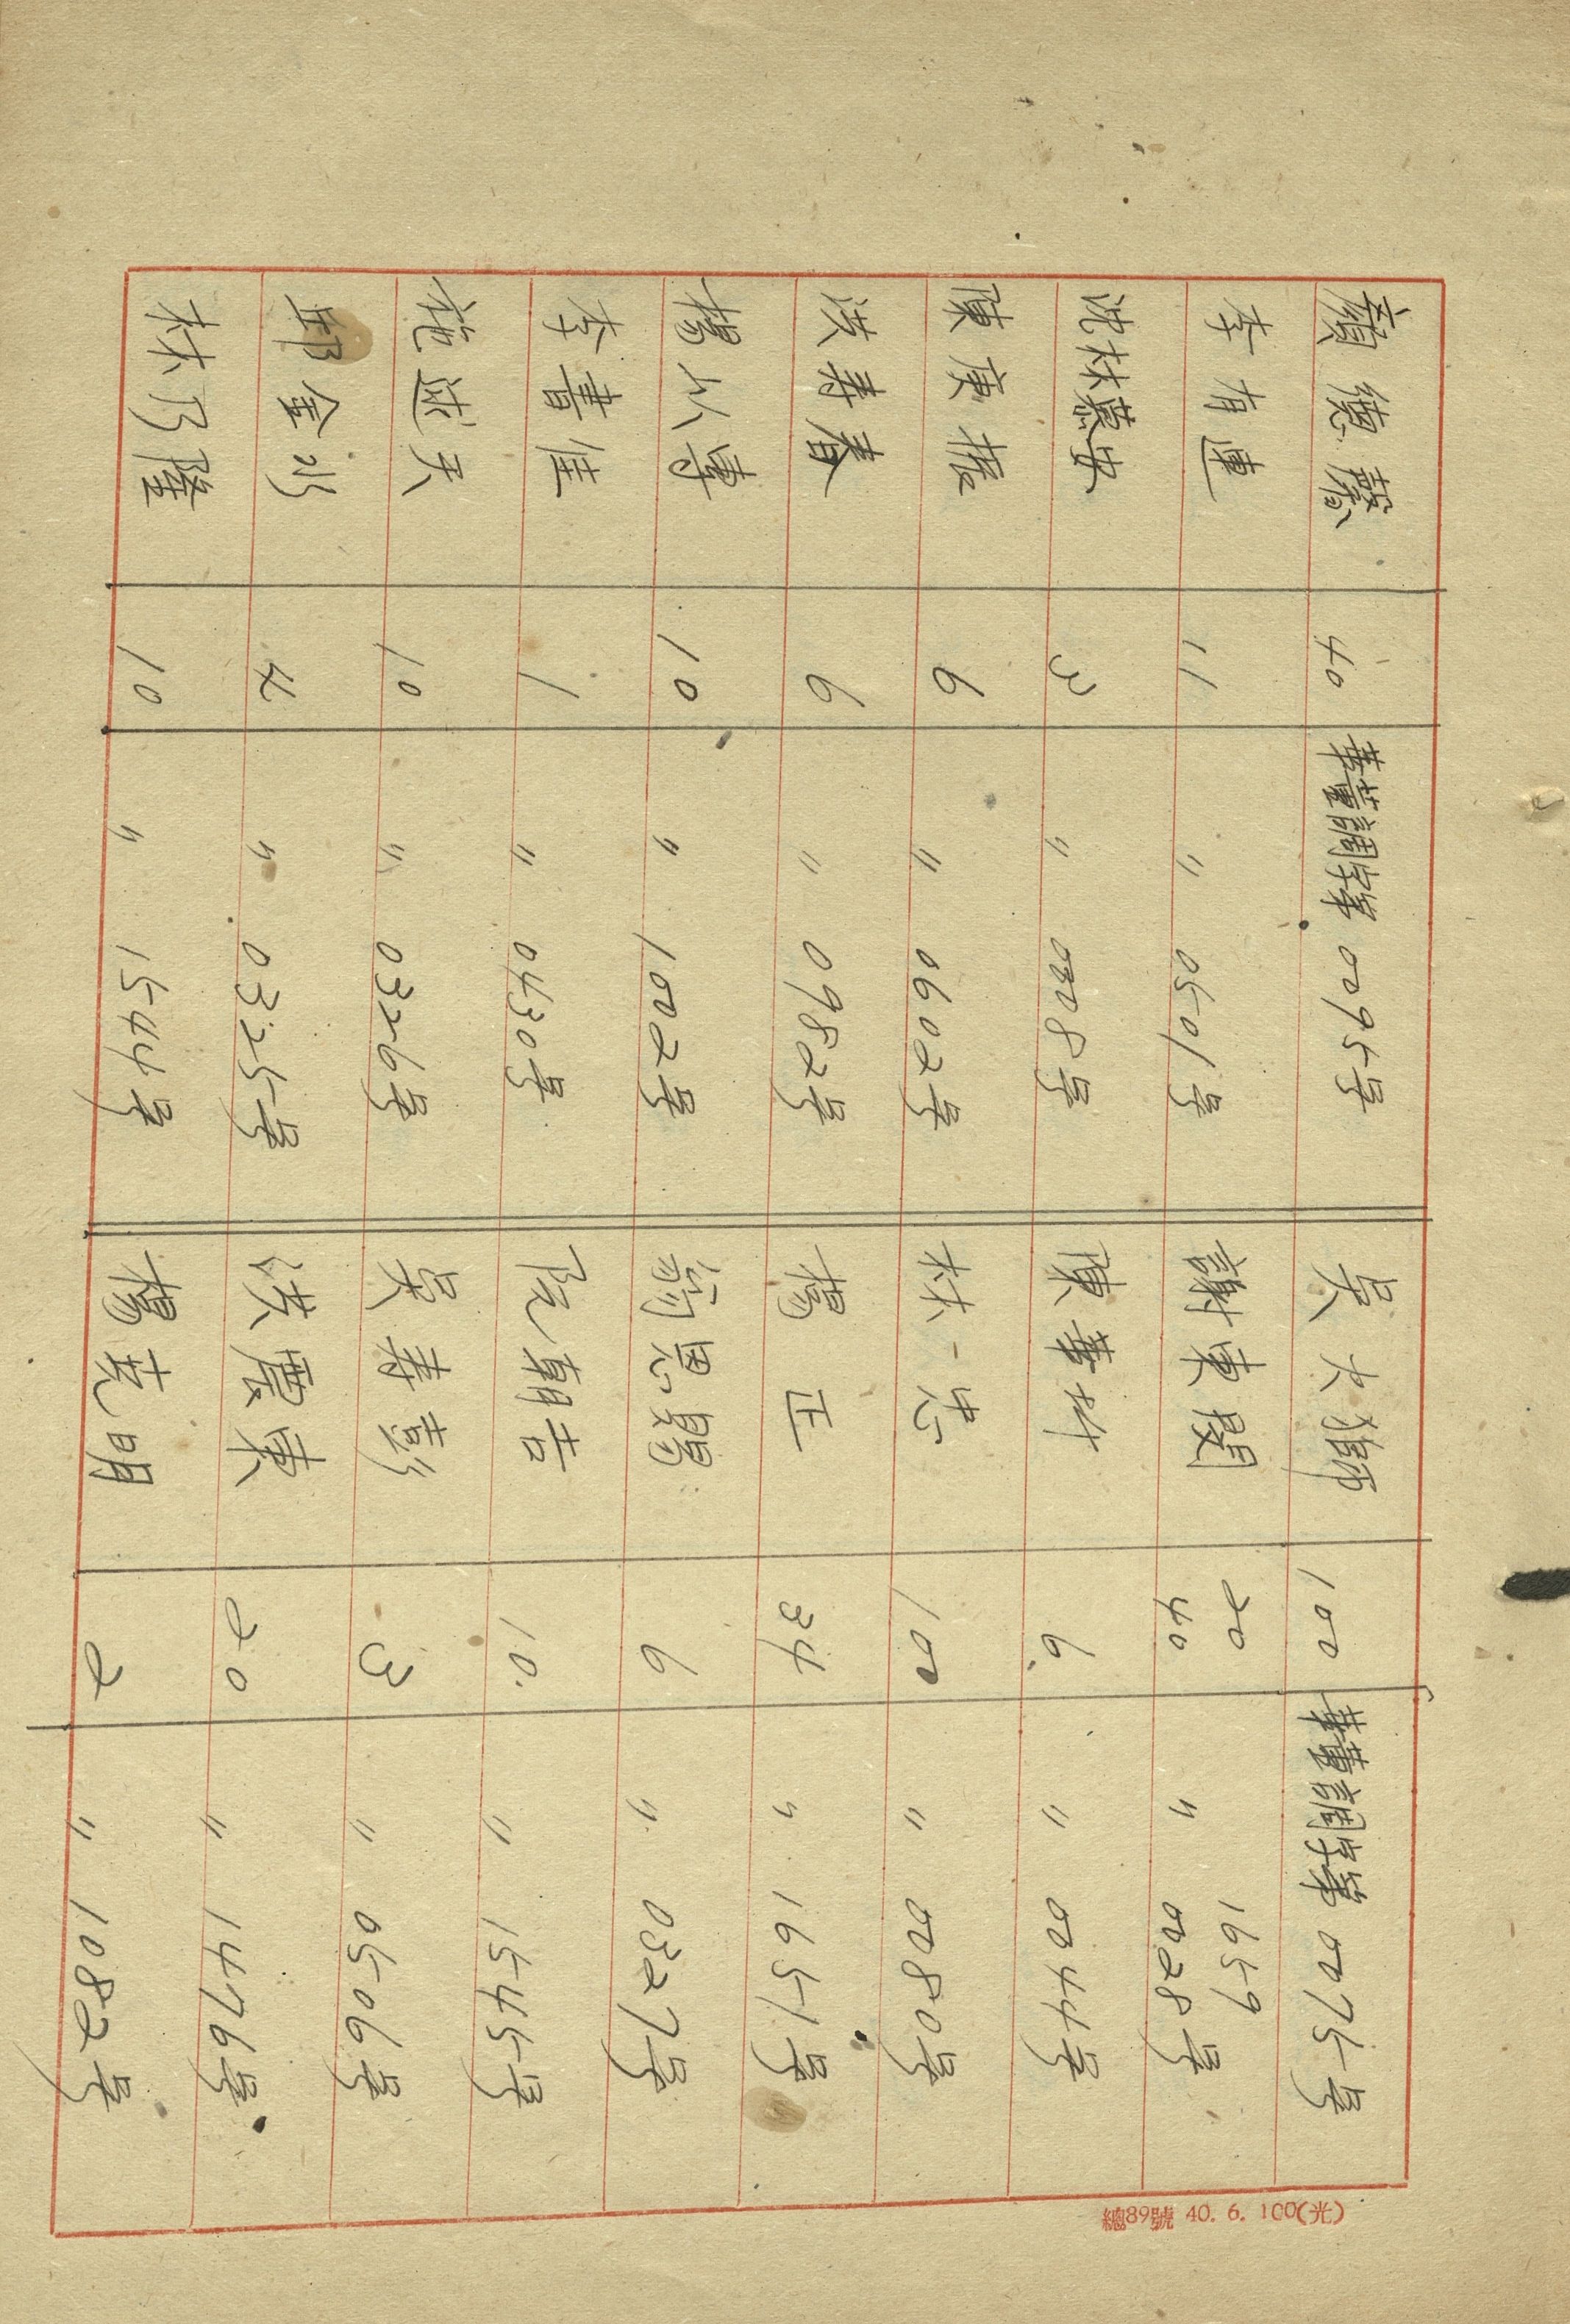 顏德馨 40 華董調字第 0095号 吳火獅 100 華董調字第 0075号
李有連 11 〃 0501号 謝東閔 20 40 〃 1659 0028号
3 〃 0008号 陳華竹 6 〃 0044号
陳庚振 6 〃 0602号 林一忠 100 〃 0080号
洪壽春 6 〃 0982号 楊正 34 〃 1651号
楊以專 10 〃 1002号 6 〃 0327号
李書佳 1 〃 0430号 阮朝吉 10 〃 1545号
10 〃 0326号 吳壽彭 3 〃 0506号
邱金水 4 〃 0325号 洪展東 20 〃 1476号
林乃隆 10 〃 1544号 楊克明 2 〃 1082号
總89號 40. 6. 100(光)